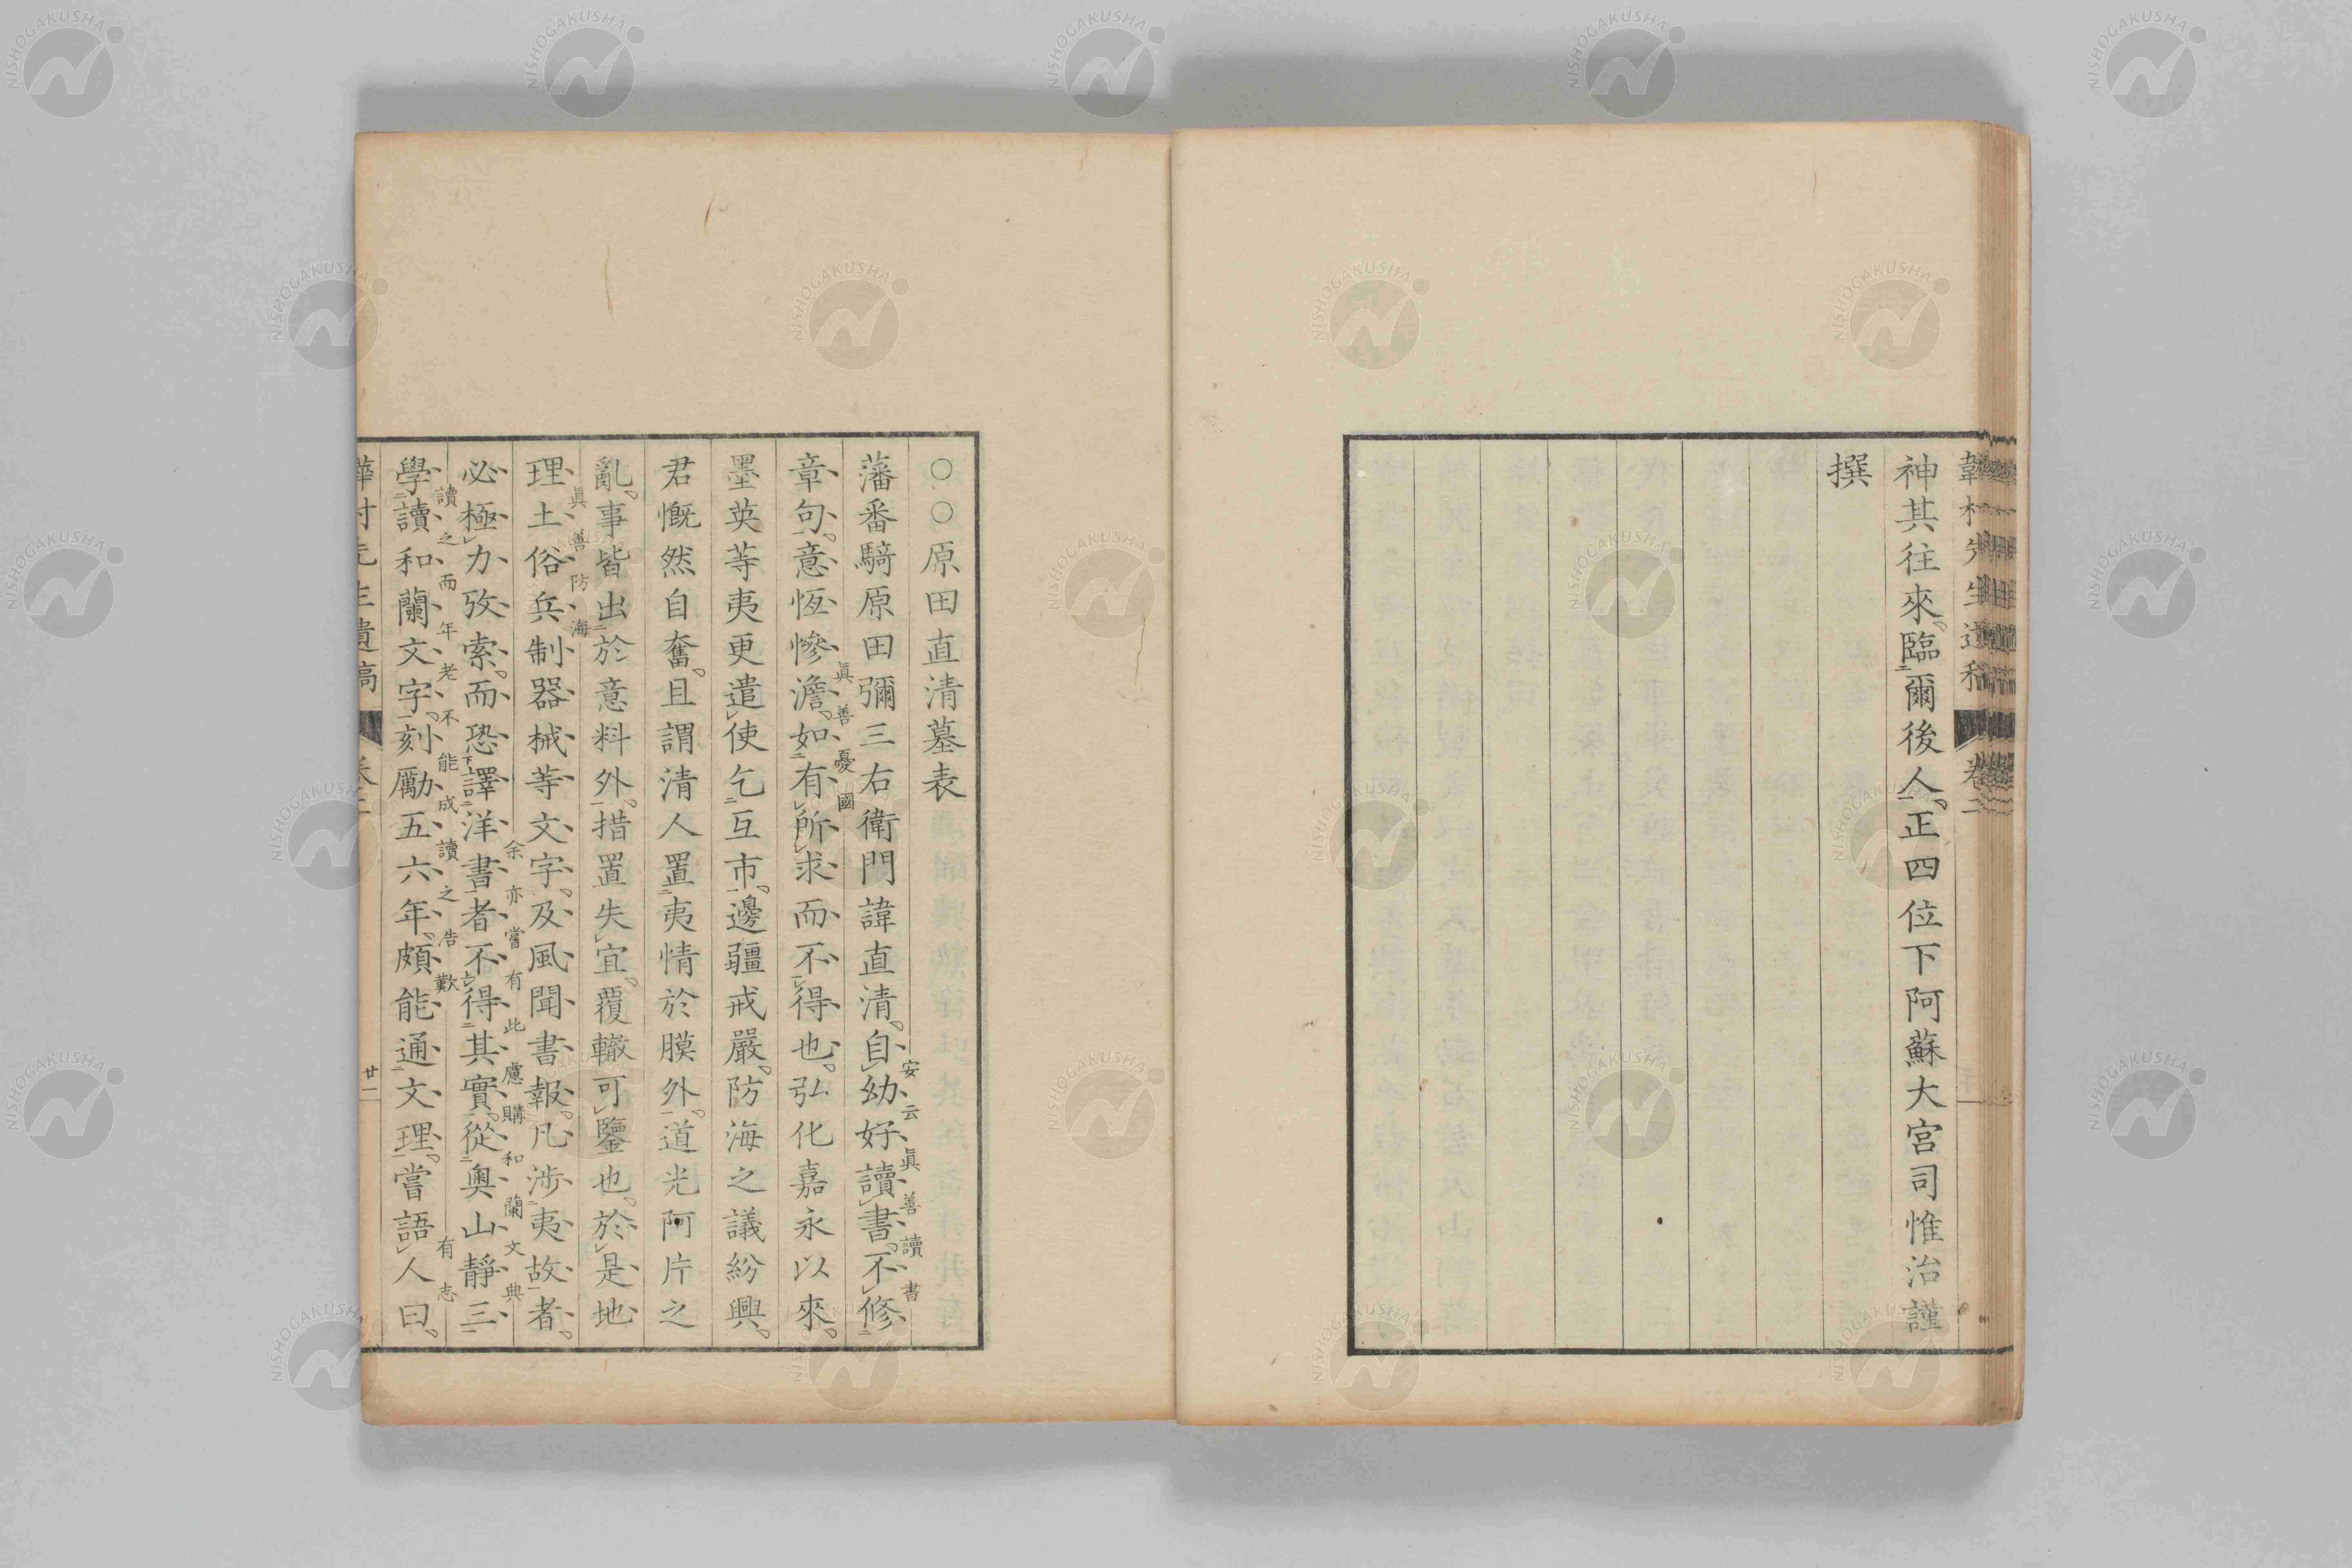 韡村先生遺稿 卷二
神其往來臨爾後人正四位下阿蘇大宮司惟治謹
撰
○○原田直清墓表
藩番騎原田彌三右衛門諱直清自幼好讀書不修
安云眞善讀書
章句意恆慘澹如有所求而不得也弘化嘉永以來
眞善憂國
墨英等夷更遣使乞互市邊疆戒嚴防海之議紛興
君慨然自奮且謂清人置夷情於膜外道光阿片之
亂事皆出於意料外措置失宜覆轍可鑒也於是地
理土俗兵制器械等文字及風聞書報凡涉夷故者
眞善防海
必極力攷索而恐譯洋書者不得其實從奧山靜三
余亦嘗有此慮購和蘭文典
學讀和蘭文字刻勵五六年頗能通文理嘗語人曰
讀之而年老不能成讀之浩歎
有志
韡村先生遺稿 卷二 廿一
NISHOGAKUSHA